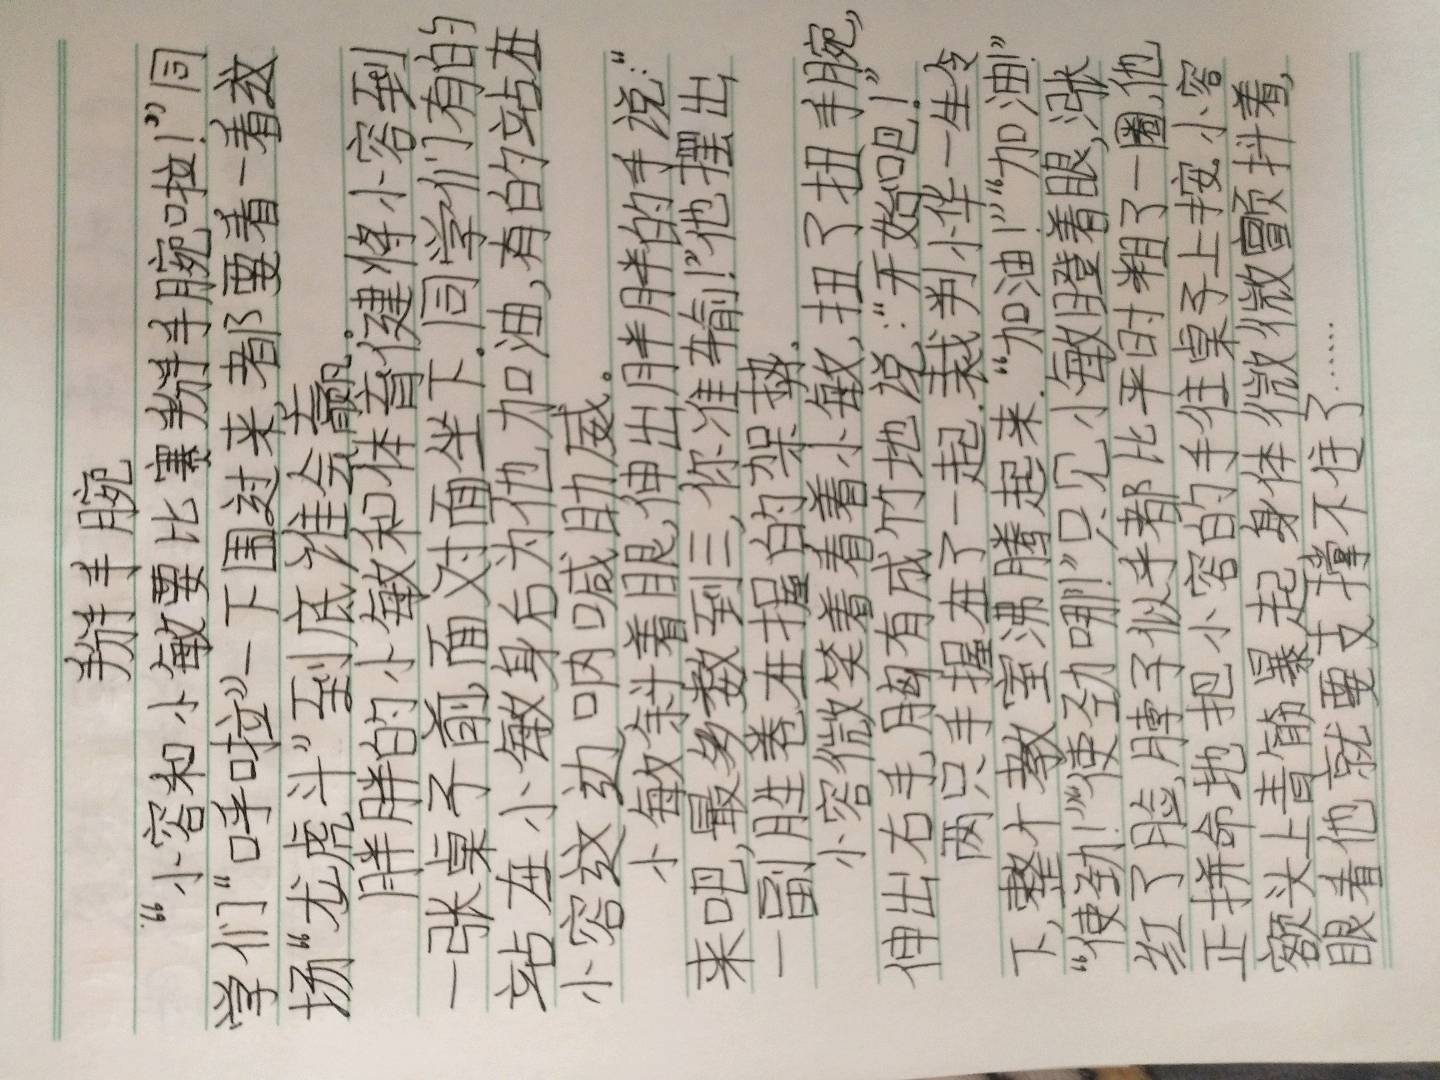 掰手腕
“小容和小敏要比赛掰手腕啦！”同
学们“呼啦”一下围过来都要看一看这
场“龙虎斗”到底谁会赢.
胖胖的小敏和体育健将小容到
一张桌子前,面对面坐下.同学们有的
站在小敏身后为他加油,有的站在
小容这边呐喊助威。
小敏斜着眼,伸出胖胖的手说:“
来吧,最多数到三,你准输！”他摆出
一副胜券在握的架势.
小容微笑着看着小敏,扭了扭手腕,
伸出右手,胸有成竹地说:“开始吧！”
两只手握在了一起.裁判小华一生令
下,整个教室沸腾起来.“加油！”“加油！”
“使劲！”“使劲哪！”只见小敏瞪着眼,涨
红了脸,脖子似乎都比平时粗了一圈,他
正拼命地把小容的手往桌子上按,小容
额头上青筋暴起,身体微微颤抖着,
眼看他就要支撑不住了……